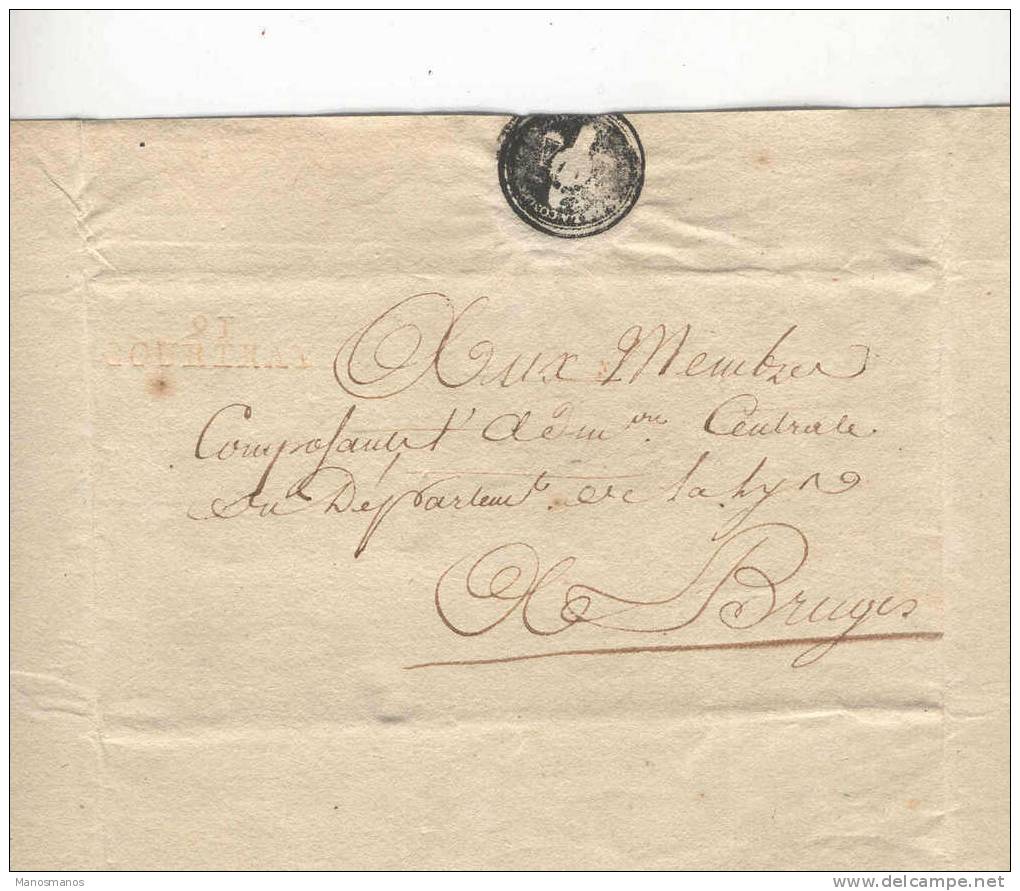 Aux Membres
Composant l'Adm.on Centrale
du Départemt. de la Lys
A Bruges
Manosmanos
delcampe.net